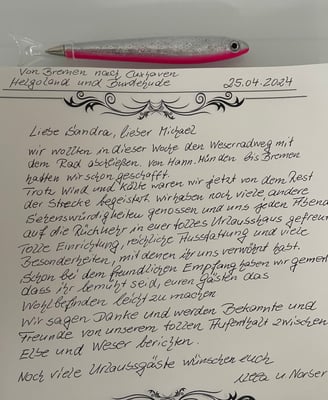 Von Bremen nach Cuxhaven
Helgoland und Buxtehude 25.04.2024
Liebe Sandra, lieber Michael
wir wollten in dieser Woche den Weserradweg mit
dem Rad abschließen. Von Hann. Münden bis Bremen
hatten wir schon geschafft.
Trotz Wind und Kälte waren wir jetzt von dem Rest
der Strecke begeistert. Wir haben noch viele andere
Sehenswürdigkeiten genossen und uns jeden Abend
auf die Rückkehr in euer tolles Urlaubshaus gefreut
Tolle Einrichtung, reichliche Ausstattung und viele
Besonderheiten, mit denen ihr uns verwöhnt habt.
Schon bei dem freundlichen Empfang haben wir gemerkt
dass ihr bemüht seid, euren Gästen das
Wohlbefinden leicht zu machen
Wir sagen Danke und werden Bekannte und
Freunde von unserem tollen Aufenthalt zwischen
Elbe und Weser berichten.
Noch viele Urlaubsgäste wünschen euch
u. Norbert